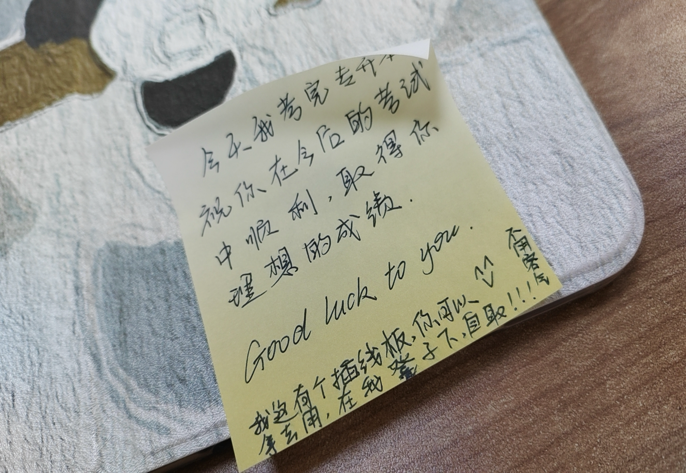 今天我考完专升本
祝你在今后的考试
中顺利,取得你
理想的成绩.
Good luck to you.
不用客气
我这有个插线板,你可以
拿去用,在我凳子下,自取!!!